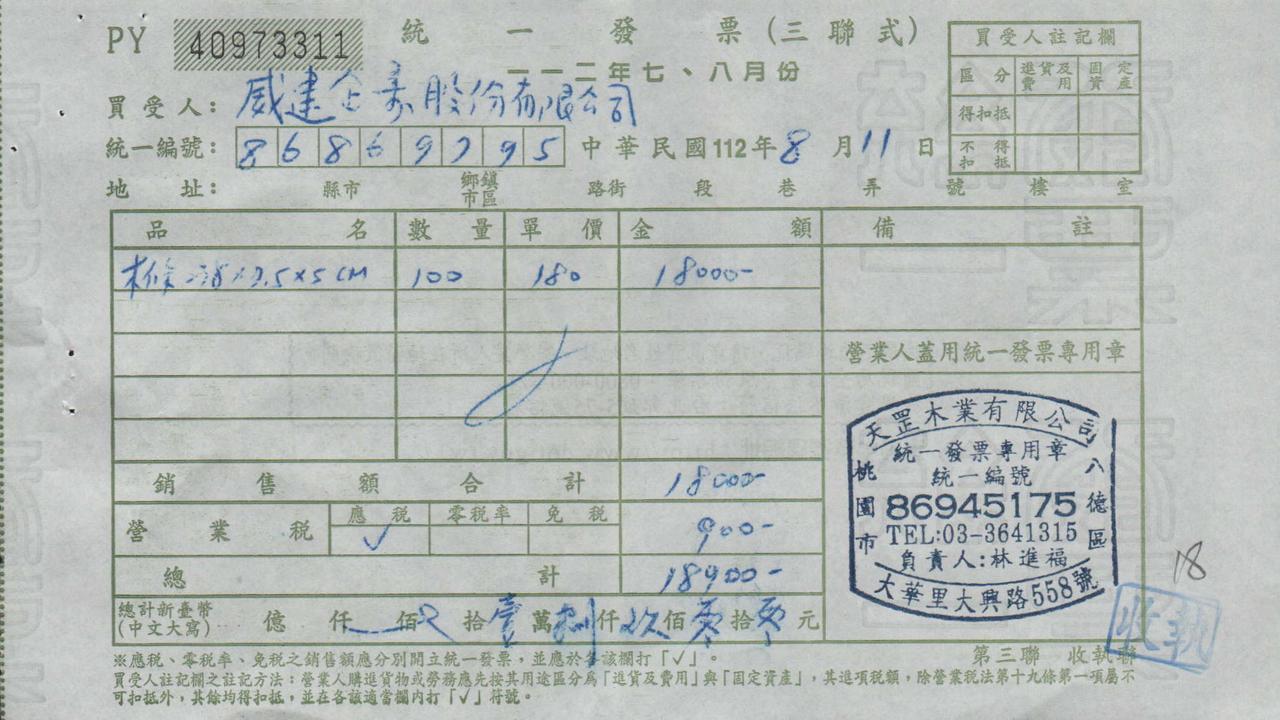 PY 40973311 統一發票(三聯式)
一一二年七、八月份
買受人: 威建企業股份有限公司
統一編號: 86869795 中華民國112年8月11日
地址: 縣市 鄉鎮市區 路街 段 巷 弄 號 樓 室
買受人註記欄
區分 進貨及費用 固定資產
得扣抵
不得扣抵
品名 數量 單價 金額 備註
木條 x5CM 100 180 18000-
營業人蓋用統一發票專用章
銷售額合計 18000-
營業稅 應稅 零稅率 免稅 900-
✓
總計 18900-
總計新臺幣(中文大寫) 億 仟 佰 拾壹萬捌仟玖佰零拾零元
天罡木業有限公司
統一發票專用章
統一編號
86945175
TEL:03-3641315
負責人:林進福
桃園市 八德區
大華里大興路558號
18
收執
第三聯 收執聯
※應稅、零稅率、免稅之銷售額應分別開立統一發票,並應於各該欄打「✓」。
買受人註記欄之註記方法:營業人購進貨物或勞務應先按其用途區分為「進貨及費用」與「固定資產」,其進項稅額,除營業稅法第十九條第一項屬不
可扣抵外,其餘均得扣抵,並在各該適當欄內打「✓」符號。